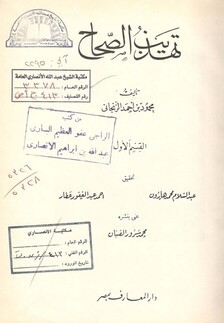 تهذيب الصحاح
مكتبة الشيخ عبد الله الأنصاري العامة
الرقم العام
٣٣٧٨
رقم التصنيف
تأليف
محمود بن أحمد الزنجاني
من كتب
الراجي عفو العظيم الباري
عبد الله بن ابراهيم الانصاري
القسم الأول
تحقيق
عبد السلام محمد هارون
أحمد عبد الغفور عطار
عنى بنشره
محمد سرور الصبان
مكتبة الانصاري
الرقم العام :
الرقم الفني :
تاريخ الورود :
دار المعارف بمصر